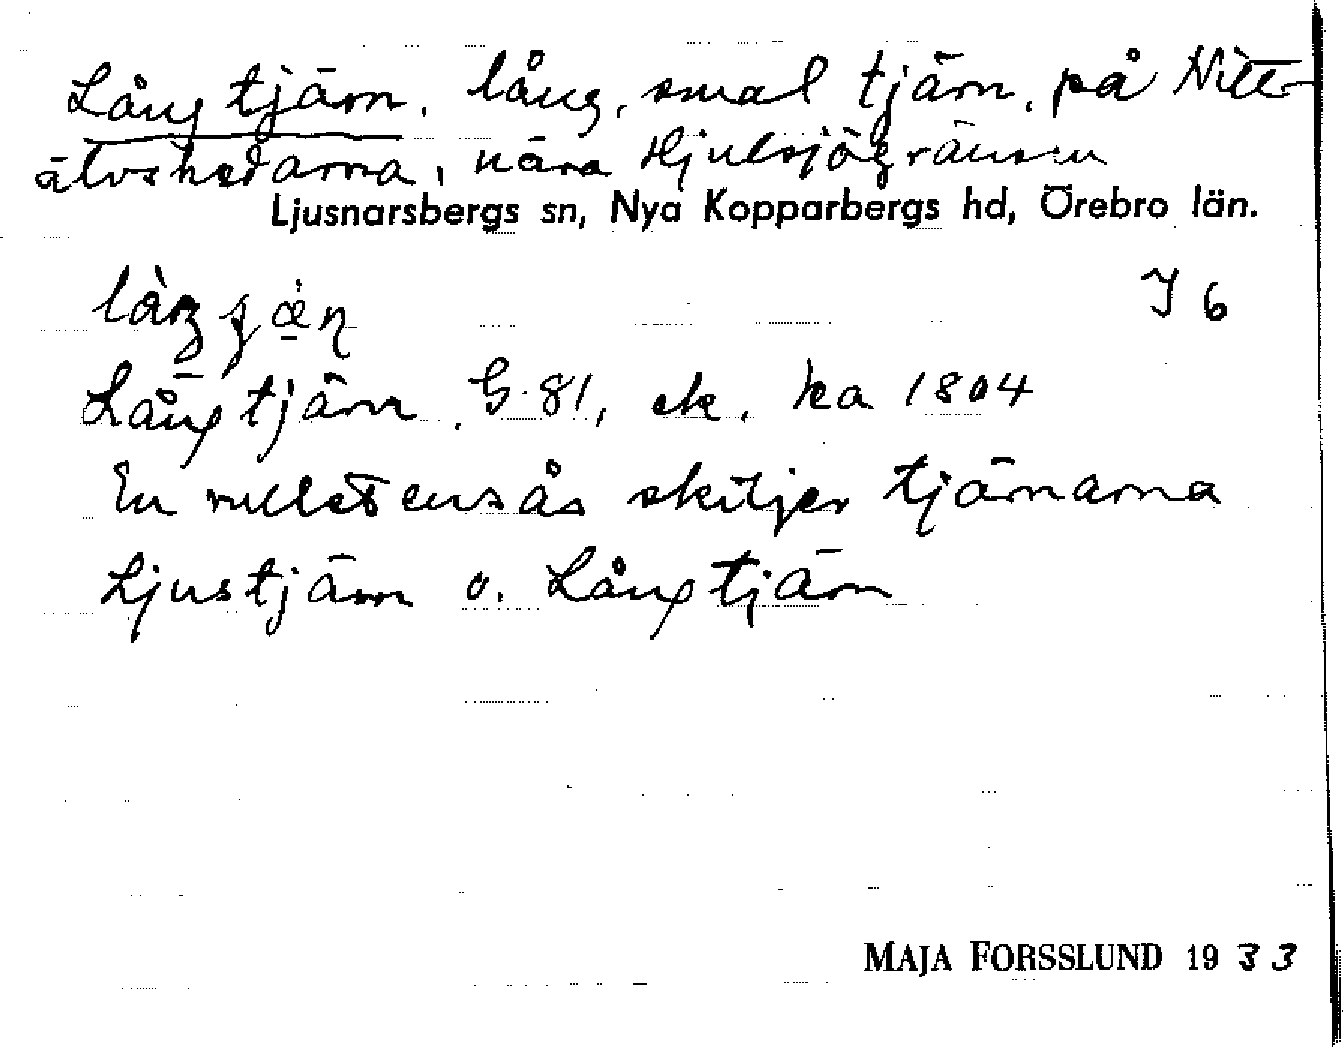 Långtjärn, lång, smal tjärn, på Nitt-
älvshedarna, nära Hjulsjögränsen
Ljusnarsbergs sn, Nya Kopparbergs hd, Örebro län.
I 6
Långtjärn, G. 81, ek. ka 1804
En rullstensås skiljer tjärnarna
Ljustjärn o. Långtjärn
MAJA FORSSLUND 19 33